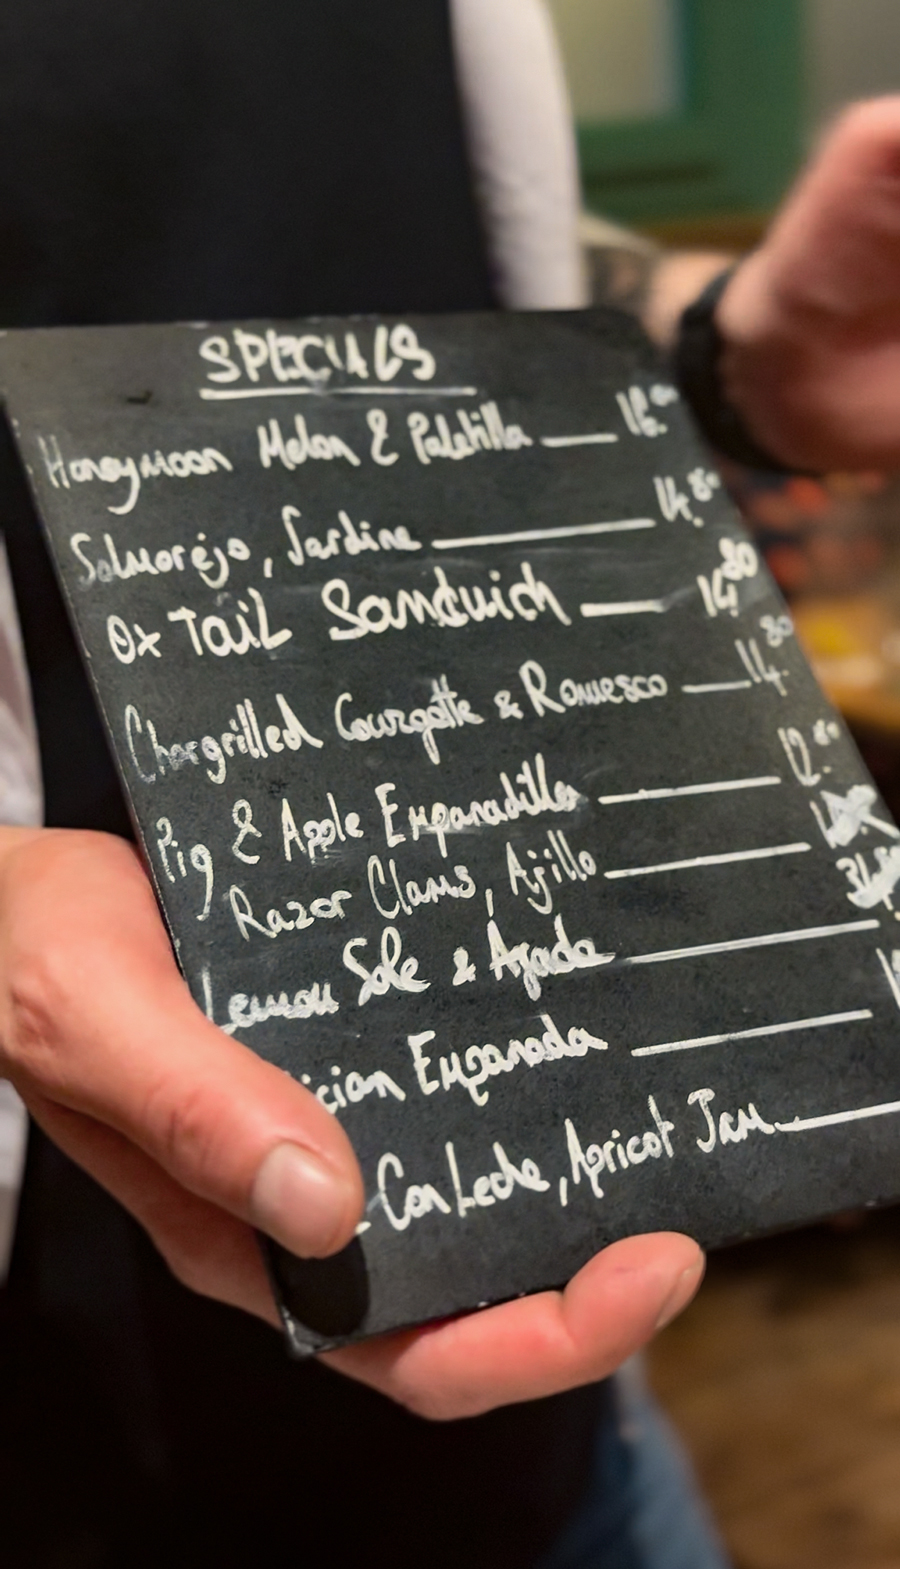 SPECIALS
Honeymoon Melon & Paletilla
Salmorejo, Sardine 14.80
Ox Tail Sandwich 14.80
Chargrilled Courgette & Romesco 14.80
Pig & Apple Empanadillas 12.
Razor Clams, Ajillo
Lemon Sole & Ajada
Empanada
Con Leche, Apricot Jam